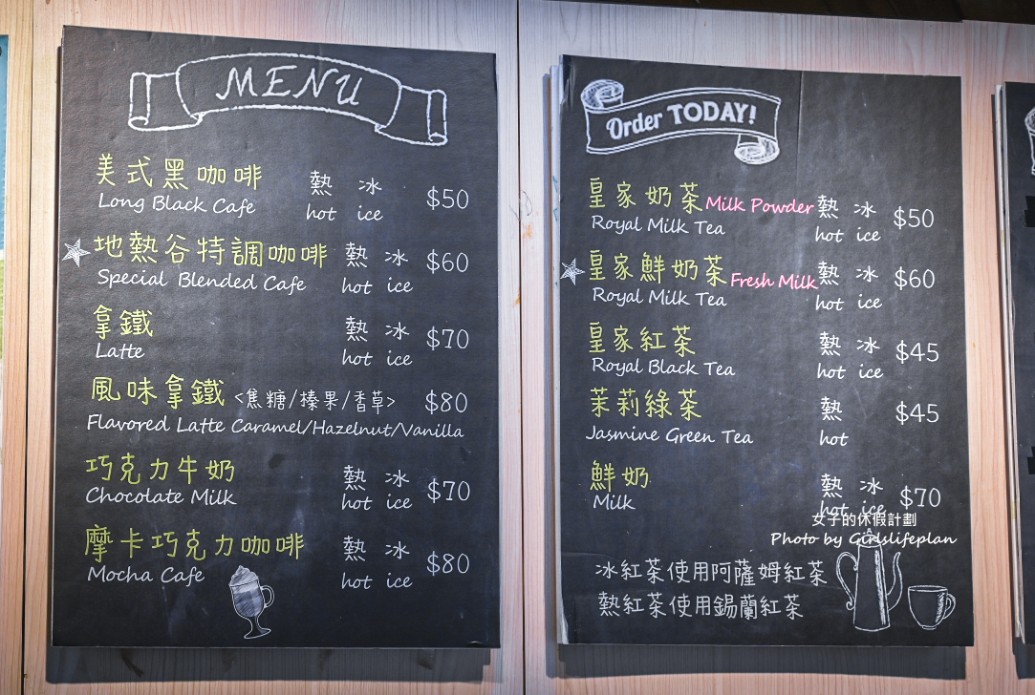 MENU
美式黑咖啡 熱 冰 $50
Long Black Cafe hot ice
地熱谷特調咖啡 熱 冰 $60
Special Blended Cafe hot ice
拿鐵 熱 冰 $70
Latte hot ice
風味拿鐵 <焦糖/榛果/香草> $80
Flavored Latte Caramel/Hazelnut/Vanilla
巧克力牛奶 熱 冰 $70
Chocolate Milk hot ice
摩卡巧克力咖啡 熱 冰 $80
Mocha Cafe hot ice
Order TODAY!
皇家奶茶 Milk Powder 熱 冰 $50
Royal Milk Tea hot ice
皇家鮮奶茶 Fresh Milk 熱 冰 $60
Royal Milk Tea hot ice
皇家紅茶 熱 冰 $45
Royal Black Tea hot ice
茉莉綠茶 熱 $45
Jasmine Green Tea hot
鮮奶 熱 冰 $70
Milk hot ice
女子的休假計劃
Photo by Girlslifeplan
冰紅茶使用阿薩姆紅茶
熱紅茶使用錫蘭紅茶